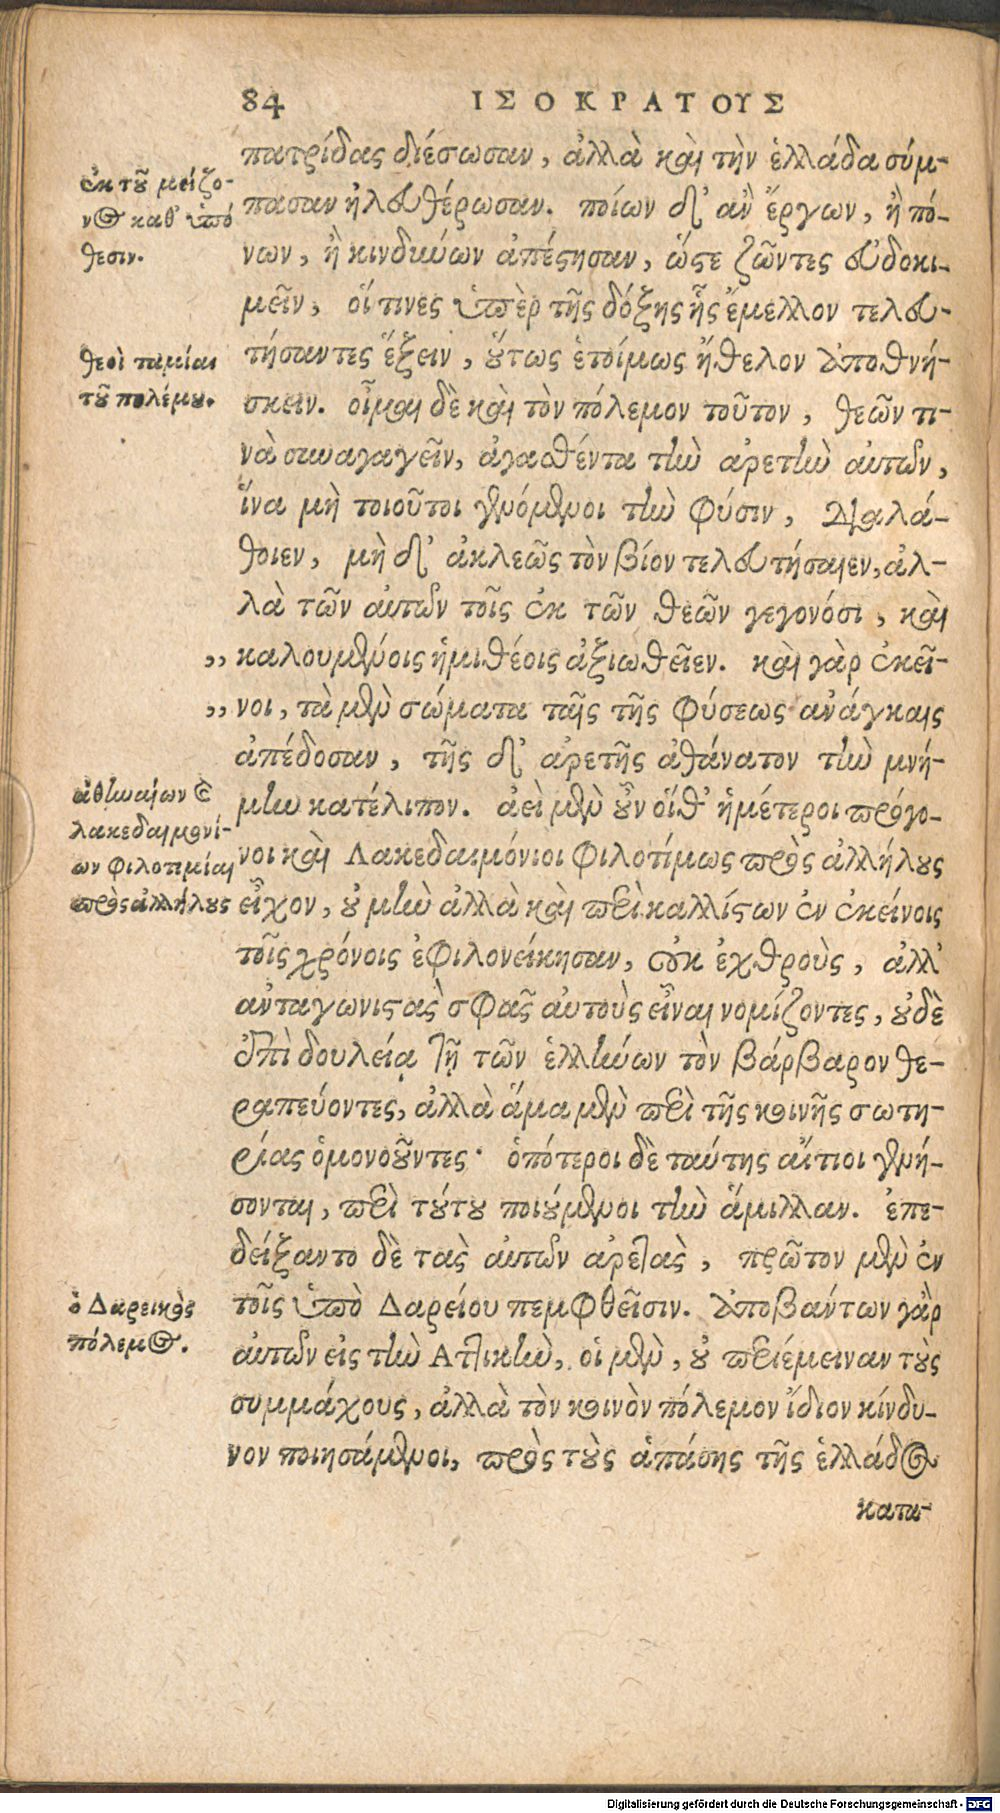 84 ΙΣΟΚΡΑΤΟΥΣ
πατρίδας διέσωσαν, ἀλλὰ καὶ τὴν ἑλλάδα σύμ-
πασαν ἠλευθέρωσαν. ποίων δ' ἂν ἔργων, ἢ πό-
νων, ἢ κινδύνων ἀπέστησαν, ὥστε ζῶντες εὐδοκι-
μεῖν, οἵ τινες ὑπὲρ τῆς δόξης ἧς ἔμελλον τελευ-
τήσαντες ἕξειν, οὕτως ἑτοίμως ἤθελον ἀποθνή-
σκειν. οἶμαι δὲ καὶ τὸν πόλεμον τοῦτον, θεῶν τι-
νὰ συναγαγεῖν, ἀγασθέντα τὴν ἀρετὴν αὐτῶν,
ἵνα μὴ τοιοῦτοι γενόμενοι τὴν φύσιν, διαλά-
θοιεν, μὴ δ' ἀκλεῶς τὸν βίον τελευτήσαιεν, ἀλ-
λὰ τῶν αὐτῶν τοῖς ἐκ τῶν θεῶν γεγονόσι, καὶ
,, καλουμένοις ἡμιθέοις ἀξιωθεῖεν. καὶ γὰρ ἐκεῖ-
,, νοι, τὰ μὲν σώματα ταῖς τῆς φύσεως ἀνάγκαις
ἀπέδοσαν, τῆς δ' ἀρετῆς ἀθάνατον τὴν μνή-
μην κατέλιπον. ἀεὶ μὲν οὖν οἵθ' ἡμέτεροι πρόγο-
νοι καὶ Λακεδαιμόνιοι φιλοτίμως πρὸς ἀλλήλους
εἶχον, οὐ μὴν ἀλλὰ καὶ περὶ καλλίστων ἐν ἐκείνοις
τοῖς χρόνοις ἐφιλονείκησαν, οὐκ ἐχθροὺς, ἀλλ'
ἀνταγωνιστὰς σφᾶς αὐτοὺς εἶναι νομίζοντες, οὐδὲ
ἐπὶ δουλείᾳ τῇ τῶν ἑλλήνων τὸν βάρβαρον θε-
ραπεύοντες, ἀλλὰ ἅμα μὲν περὶ τῆς κοινῆς σωτη-
ρίας ὁμονοοῦντες· ὁπότεροι δὲ ταύτης αἴτιοι γενή-
σονται, περὶ τούτου ποιούμενοι τὴν ἅμιλλαν. ἐπε-
δείξαντο δὲ τὰς αὐτῶν ἀρετὰς, πρῶτον μὲν ἐν
τοῖς ὑπὸ Δαρείου πεμφθεῖσιν. ἀποβάντων γὰρ
αὐτῶν εἰς τὴν Ἀττικὴν, οἱ μὲν, οὐ περιέμειναν τοὺς
συμμάχους, ἀλλὰ τὸν κοινὸν πόλεμον ἴδιον κίνδυ-
νον ποιησάμενοι, πρὸς τοὺς ἁπάσης τῆς ἑλλάδος
κατα-
ἐκ τοῦ μείζο-
νος καθ' ὑπό
θεσιν.
θεοὶ ταμίαι
τοῦ πολέμου.
ἀθηναίων καὶ
λακεδαιμονί-
ων φιλοτιμίαι
πρὸς ἀλλήλους
ὁ Δαρεικὸς
πόλεμος.
Digitalisierung gefördert durch die Deutsche Forschungsgemeinschaft - DFG